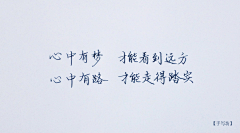 心中有梦 才能看到远方
心中有路 才能走得踏实
【手写版】